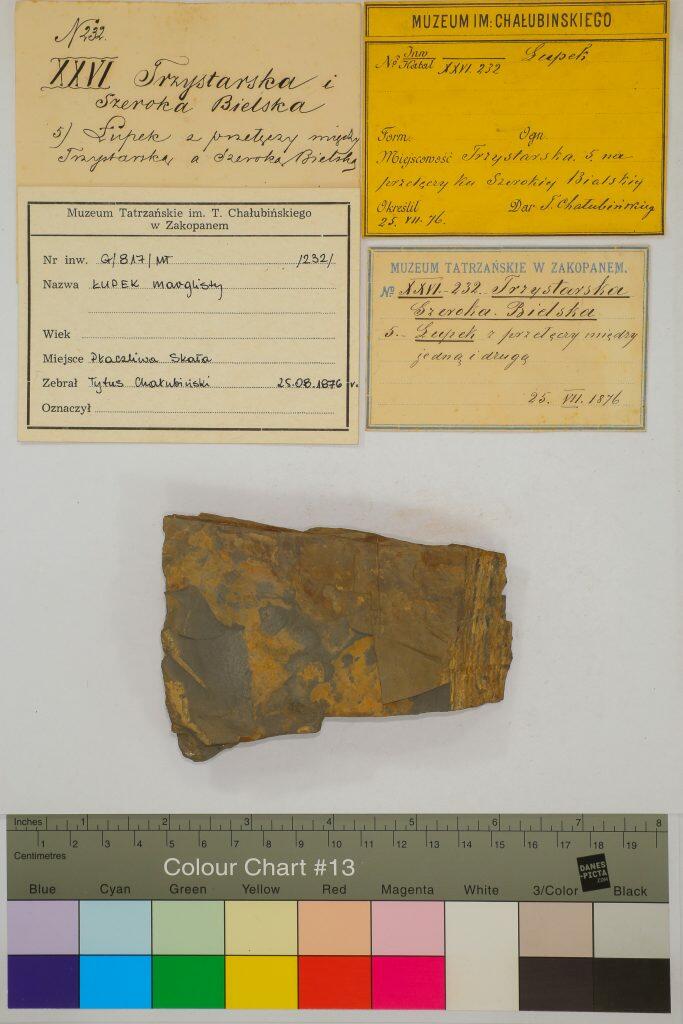 N 232.
XXVI Trzystarska i
Szeroka Bielska
5) Łupek z przełęczy między
Trzystarską a Szeroką Bielską
MUZEUM IM: CHAŁUBINSKIEGO
№ Inw Katal XXVI. 232 Łupek
Form. Ogn.
Miejscowość Trzystarska, 5. na
przełęczy ku Szerokiej Bialskiej
Określił Dar T. Chałubińskiego
25. VII. 76.
Muzeum Tatrzańskie im. T. Chałubińskiego
w Zakopanem
Nr inw. G/817/MT /232/
Nazwa ŁUPEK marglisty
Wiek
Miejsce Płaczliwa Skała
Zebrał Tytus Chałubiński 25.08.1876 r.
Oznaczył
MUZEUM TATRZAŃSKIE W ZAKOPANEM.
№ XXVI-232. Trzystarska
Szeroka. Bielska
5.- Łupek z przełęczy między
jedną i drugą
25. VII. 1876
Inches 1 2 3 4 5 6 7 8
Centimetres 1 2 3 4 5 6 7 8 9 10 11 12 13 14 15 16 17 18 19
Colour Chart #13
DANES
-PICTA
.COM
Blue Cyan Green Yellow Red Magenta White 3/Color Black